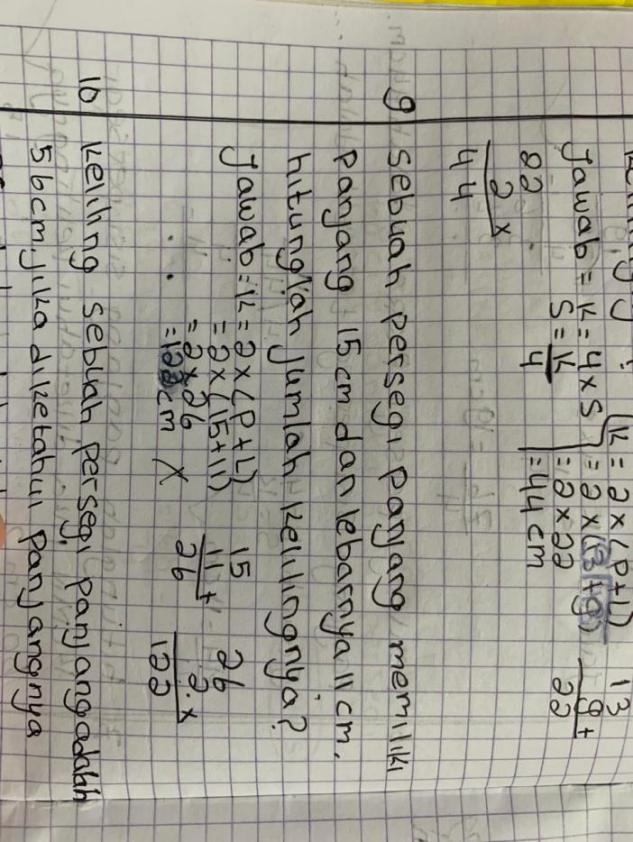 Jawab = K = 4 x S
S = K
4
K = 2 x (P + l)
= 2 x (13 + 9)
= 2 x 22
= 44 cm
13
9 +
22
22
2 x
44
9 sebuah persegi panjang memiliki
panjang 15 cm dan lebarnya 11 cm.
hitunglah jumlah kelilingnya?
Jawab = K = 2 x (P + L)
= 2 x (15 + 11)
= 2 x 26
= 122 cm X
15
11 +
26
26
2 x
122
10 keliling sebuah persegi panjang adalah
56 cm. jika diketahui panjangnya